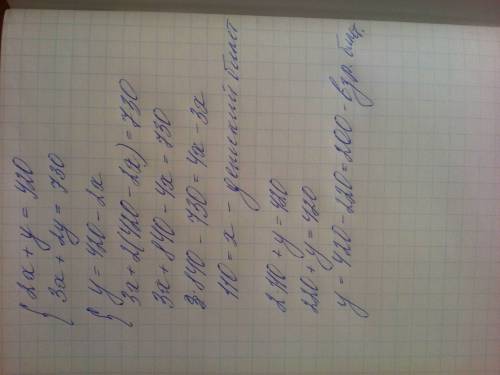 { 2x + y = 420
3x + 2y = 730
{ y = 420 - 2x
3x + 2(420 - 2x) = 730
3x + 840 - 4x = 730
840 - 730 = 4x - 3x
110 = x - детский билет
2·110 + y = 420
220 + y = 420
y = 420 - 220 = 200 - взр. бил.